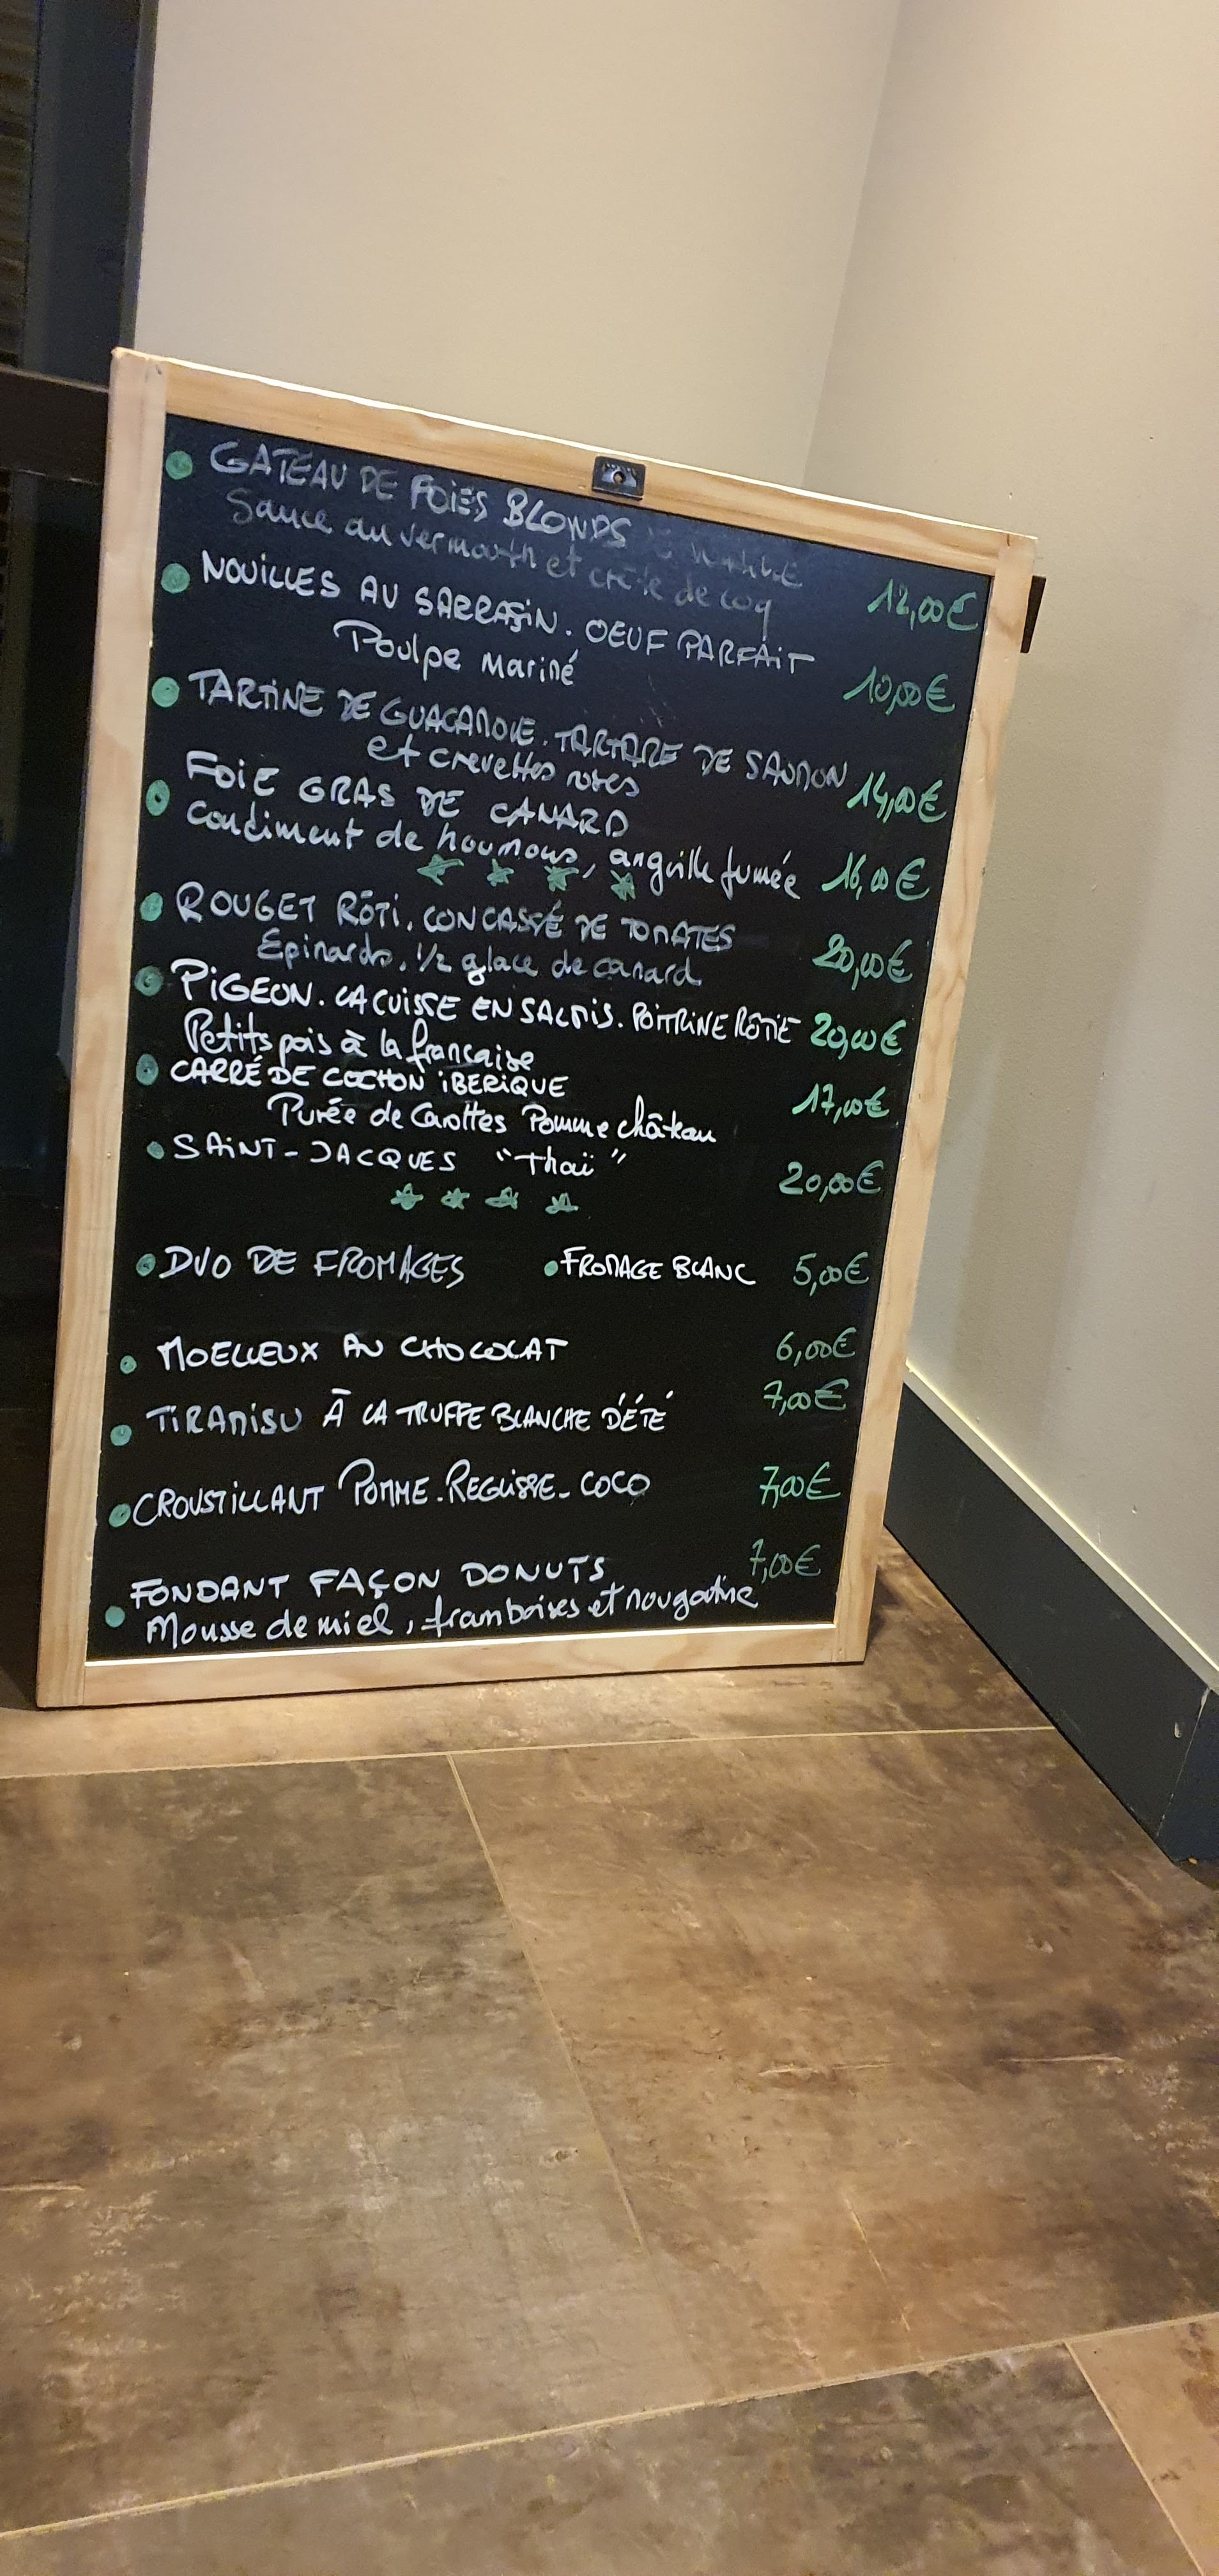 GATEAU DE FOIES BLONDS
Sauce au vermouth et crête de coq 12,00€
NOUILLES AU SARRASIN. OEUF PARFAIT
Poulpe mariné 10,00€
TARTINE DE GUACAMOLE. TARTARE DE SAUMON
et crevettes roses 14,00€
FOIE GRAS DE CANARD
Condiment de houmous, anguille fumée 16,00€
ROUGET RÔTI. CONCASSÉ DE TOMATES
Epinards. 1/2 glace de canard 20,00€
PIGEON. LA CUISSE EN SALMIS. POITRINE RÔTIE 20,00€
Petits pois à la française
CARRÉ DE COCHON IBERIQUE
Purée de Carottes Pomme château 17,00€
SAINT-JACQUES "Thaï" 20,00€
DUO DE FROMAGES FROMAGE BLANC 5,00€
MOELLEUX AU CHOCOLAT 6,00€
TIRAMISU À LA TRUFFE BLANCHE D'ÉTÉ 7,00€
CROUSTILLANT POMME. REGLISSE_COCO 7,00€
FONDANT FAÇON DONUTS 7,00€
Mousse de miel, framboises et nougatine